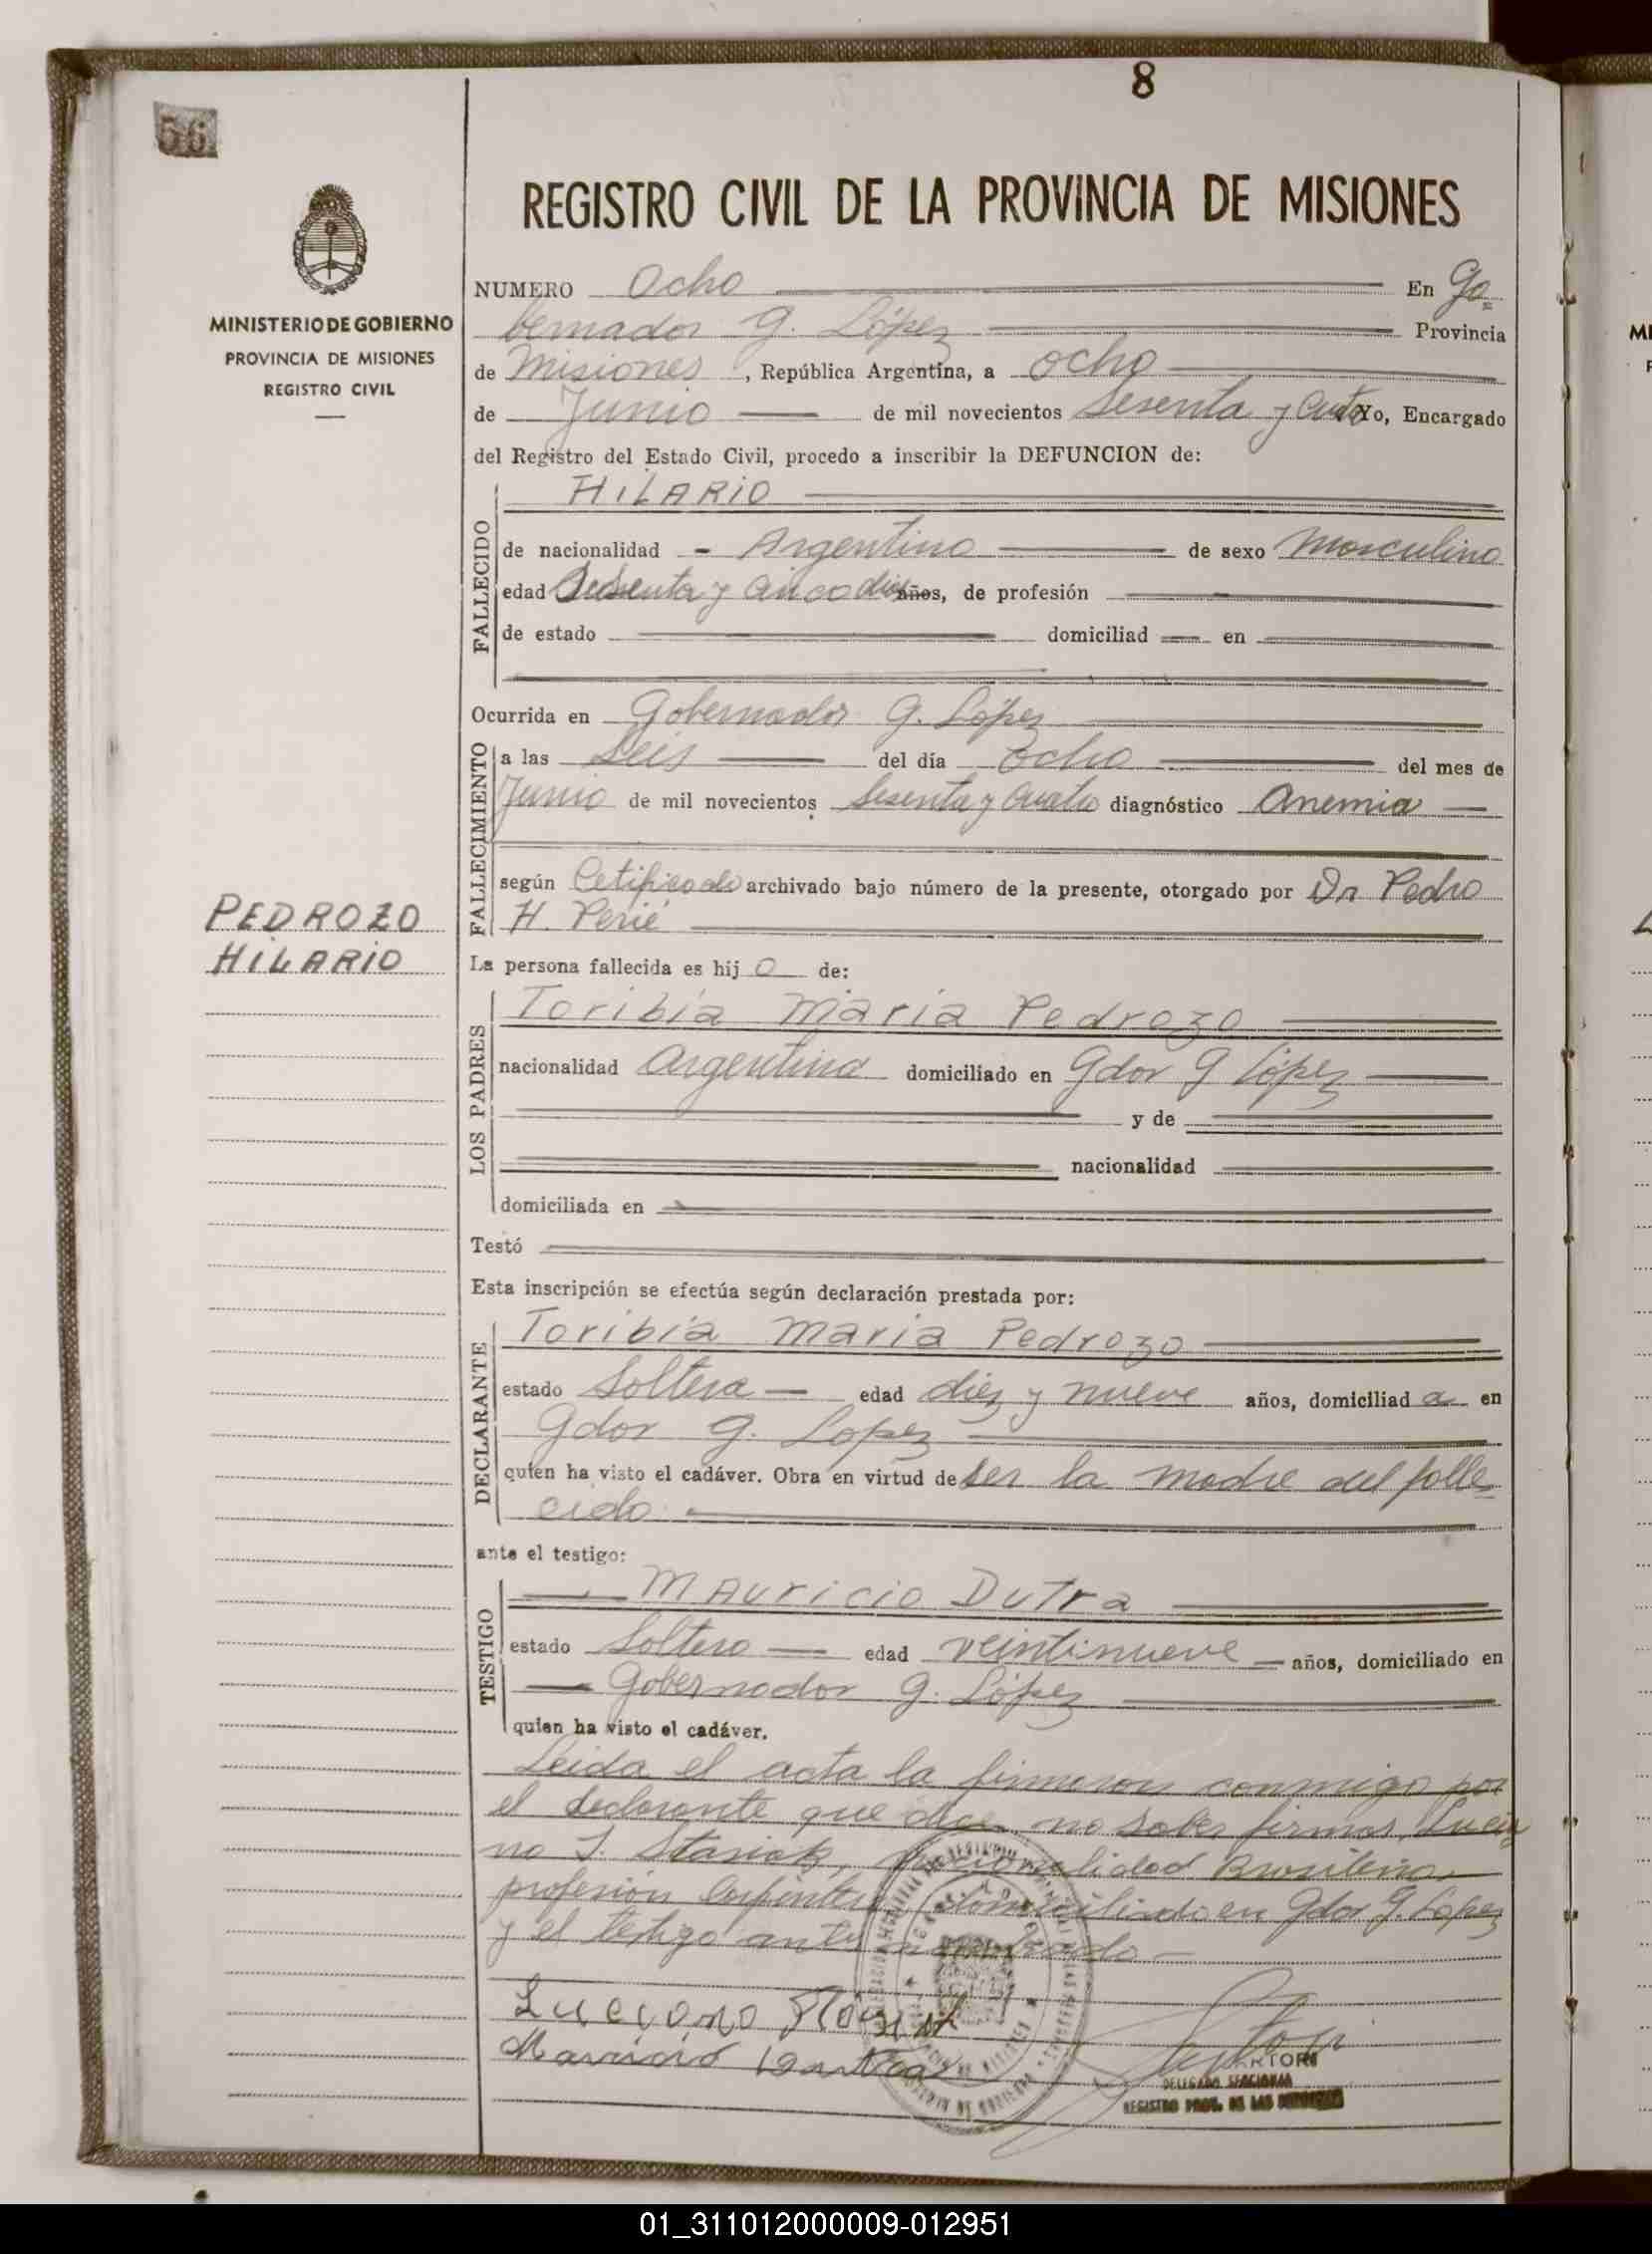 8
56
REGISTRO CIVIL DE LA PROVINCIA DE MISIONES
MINISTERIO DE GOBIERNO
PROVINCIA DE MISIONES
REGISTRO CIVIL
NUMERO Ocho En Go=
bernador G. López Provincia
de Misiones, República Argentina, a ocho
de Junio de mil novecientos sesenta y Yo, Encargado
del Registro del Estado Civil, procedo a inscribir la DEFUNCION de:
FALLECIDO
HILARIO
de nacionalidad - Argentino de sexo Masculino
edad y cinco dias años, de profesión
de estado domiciliad en
Ocurrida en Gobernador G. López
FALLECIMIENTO
a las seis del día ocho del mes de
Junio de mil novecientos sesenta y cuatro diagnóstico Anemia
según Cetificado archivado bajo número de la presente, otorgado por Dr. Pedro
H. Perié
PEDROZO
HILARIO
La persona fallecida es hij o de:
LOS PADRES
Toribia Maria Pedrozo
nacionalidad Argentina domiciliado en Gdor G López
y de
nacionalidad
domiciliada en
Testó
Esta inscripción se efectúa según declaración prestada por:
DECLARANTE
Toribia Maria Pedrozo
estado Soltera edad diez y nueve años, domiciliad a en
Gdor G. Lopez
quien ha visto el cadáver. Obra en virtud de ser la madre del falle
cido
ante el testigo:
TESTIGO
Mauricio Dutra
estado Soltero edad veintinueve años, domiciliado en
Gobernador G. López
quien ha visto el cadáver.
Leida el acta la firmaron conmigo por
el declarante que dice no saber firmar, Lucia
no J. nacionalidad Brasileña
profesión Carpintero domiciliado en Gdor G. Lopez
y el testigo antes nombrado
Luciano
Mauricio Dutra
DELEGADO SECCIONAL
REGISTRO PROV. DE LAS PERSONAS
01_311012000009-012951